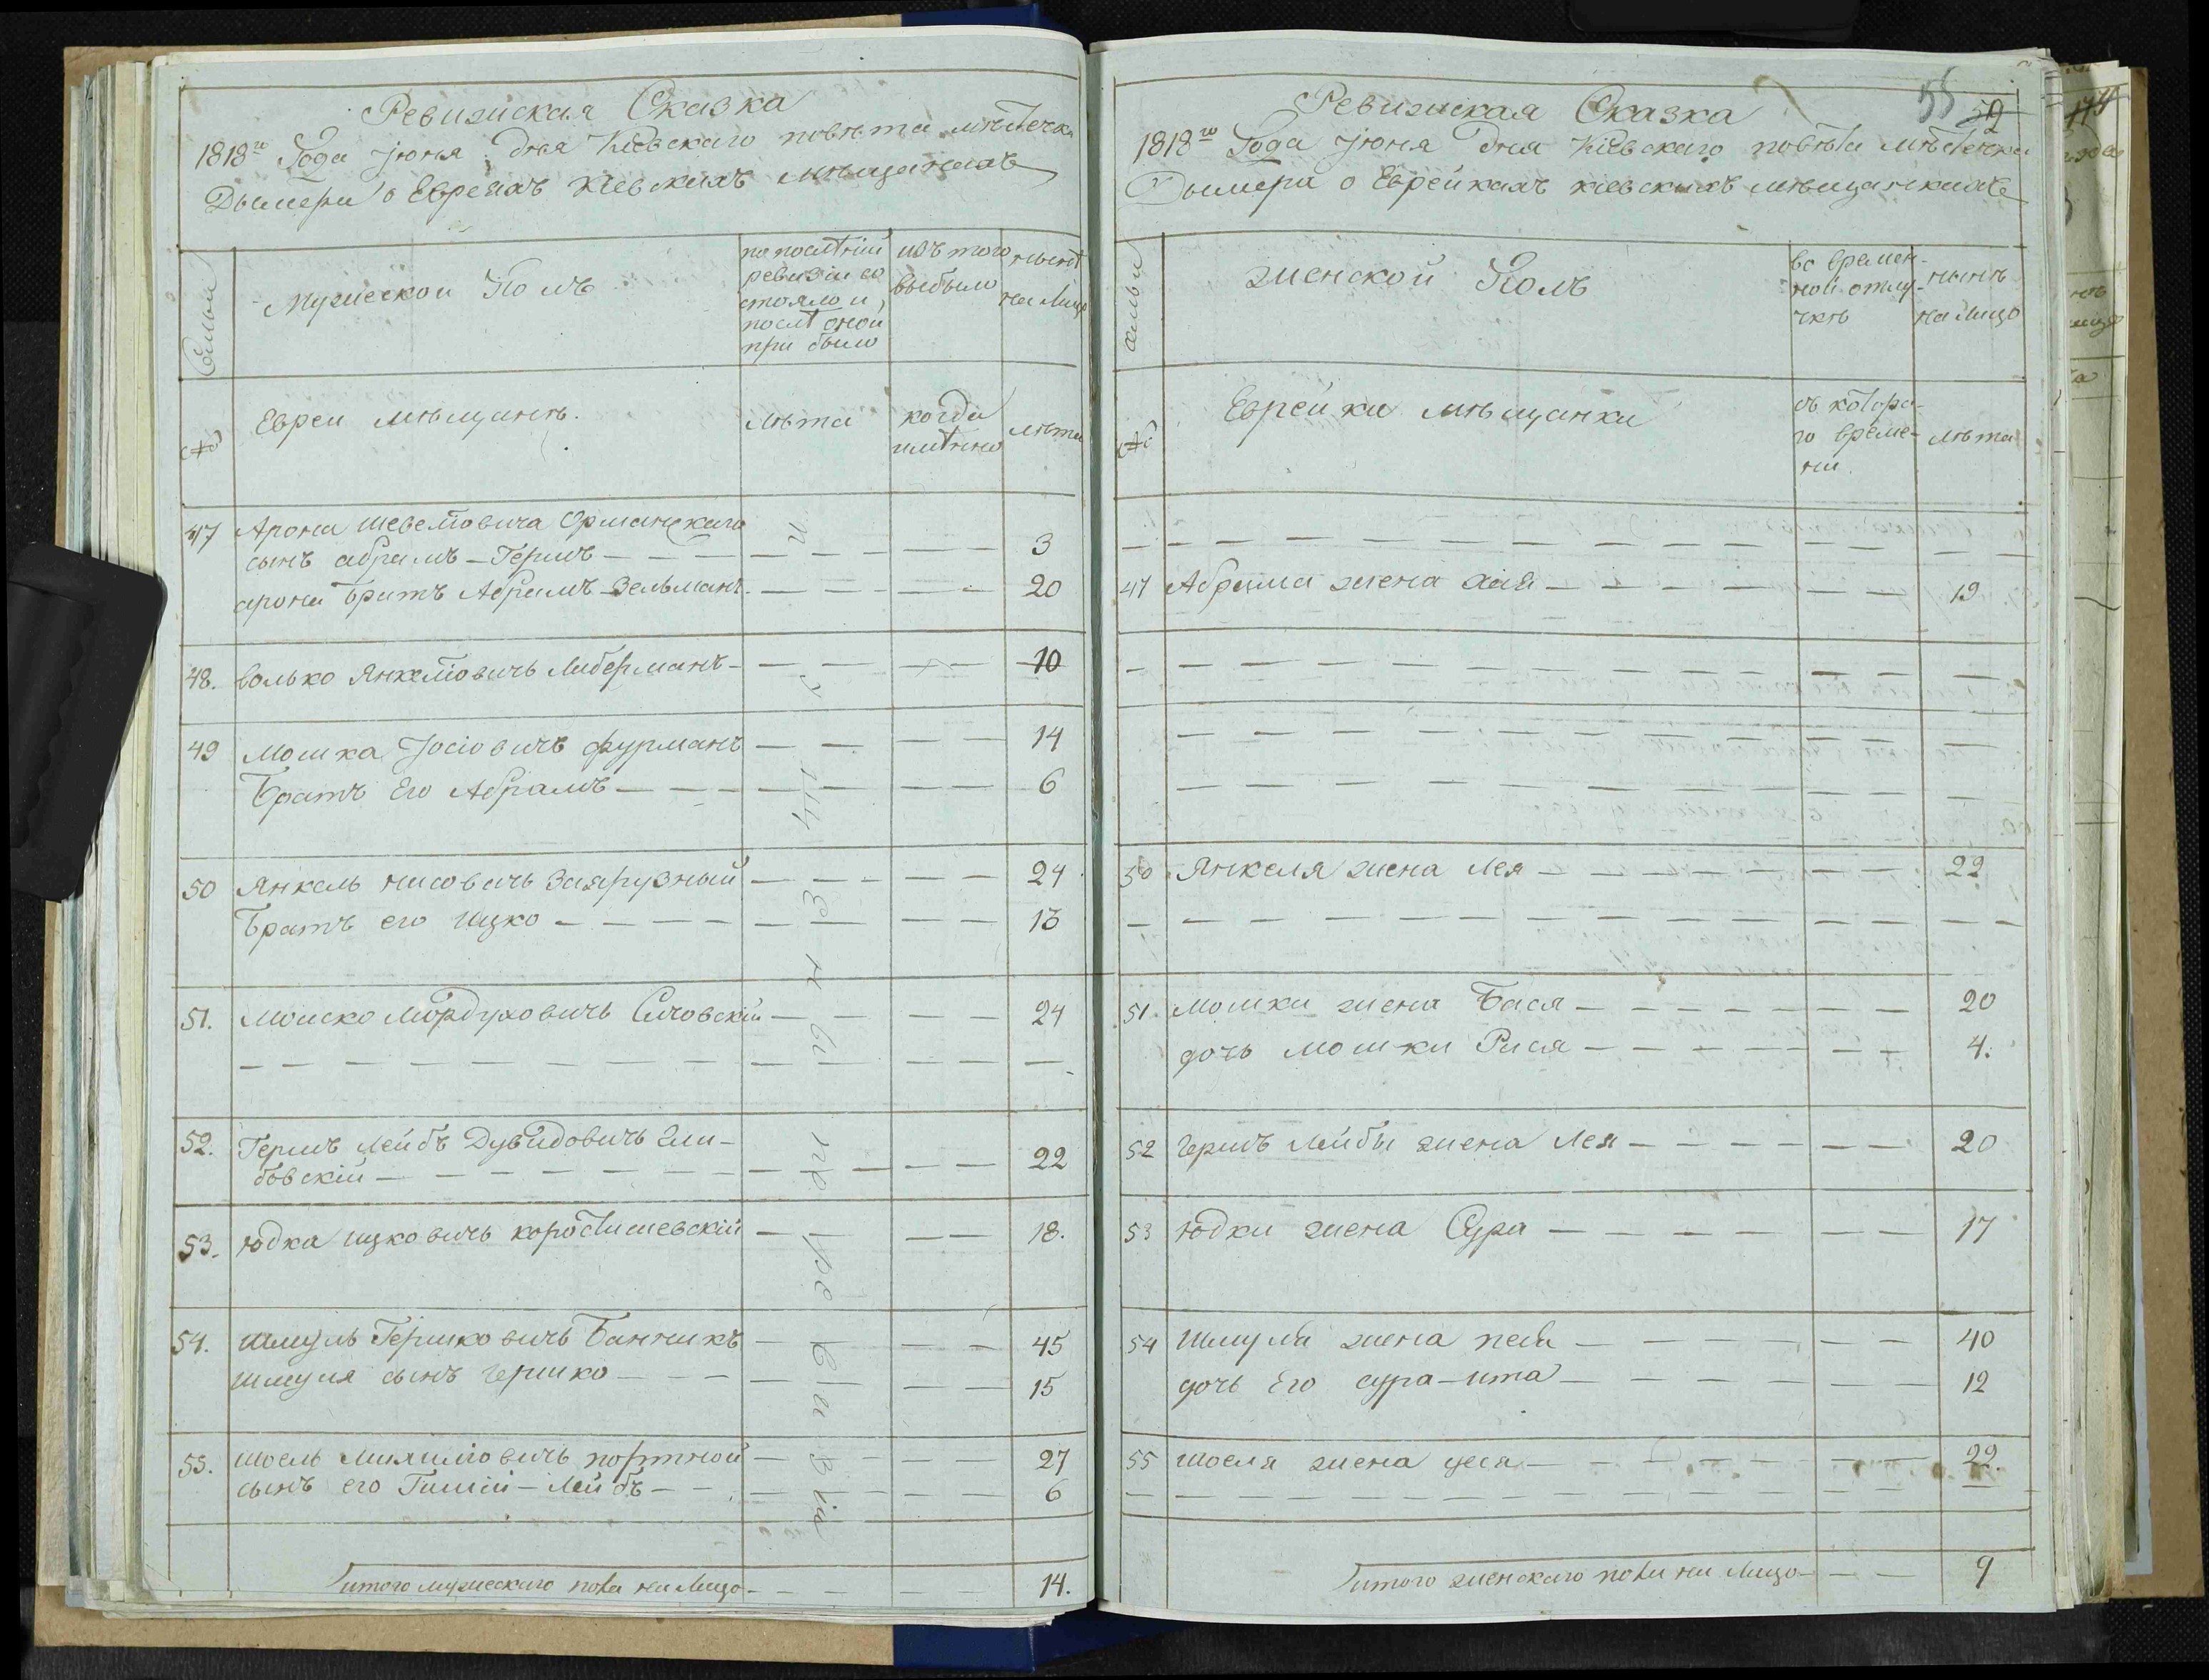 Ревизская Сказка
1818го Года Iюня дня Кiевскаго повѣта мѣстечка
Дымера о Евреяхъ Кiевскихъ мѣщанахъ
Семьи
Мужескои Полъ
по послѣтнiй
ревизiи со
стояло и
послѣ оной
при было
изъ того
выбыло
нынѣ
на Лицо
№
Евреи мѣщане.
лѣта
когда
имѣнно
лѣта
47 Арона Шевелiовича Орманскаго
сынъ абрамъ - Гершъ 3
арона Братъ Абрамъ - Зельманъ 20
48. Волько Янкелiовичь Либерманъ 10
49 Мошка Iосiовичъ фурманъ 14
Братъ Его Абрамъ 6
50 Янкель нисовичь Заярузный 24
Братъ его ицко 13
51. Мошко Мордуховичь Сичовскiй 24
52. Гершъ Лейбъ Дувидовичь Гли-
бовскiй 22
53. Юдка ицковичь коростишевскiй 18.
54. Шмуль Гершковичь Банникъ 45
Шмуля сынъ гершко 15
55. Шоель портной 27
сынъ его Лейбъ 6
итого мужескаго пола на Лицо 14.
55
52
Ревизская Сказка
1818го Года Iюня Дня Кiевскаго повѣта мѣстечка
Дымера о Еврейкахъ кiевскихъ мѣщанкахъ
семьи
женской Полъ
во времен-
ной отлу-
чкѣ
нынѣ
на лицо
№
Еврейки мѣщанки
съ котора-
го време-
ни
лѣта
47 Абрама жена хая 19
50 Янкеля жена Лея 22
51. Мошки жена Бася 20
дочь мошки Рися 4.
52 Гершъ Лейбы жена Лея 20
53 Юдки жена Сура 17
54 Шмуля жена песя 40
дочь Его сура-ита 12
55 Шоеля жена цеся 22.
итого женскаго пола на лицо 9